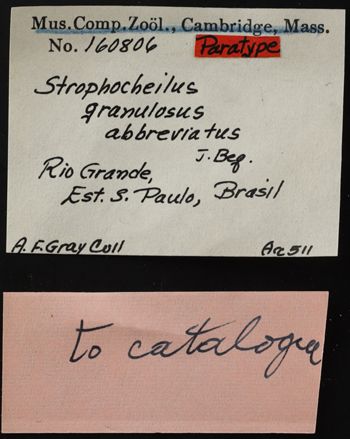 Mus.Comp.Zoöl., Cambridge, Mass.
No. 160806 Paratype
Strophocheilus
granulosus
abbreviatus
J. Beq.
Rio Grande,
Est. S. Paulo, Brasil
A. F. Gray Coll Acc 511
to catalogue